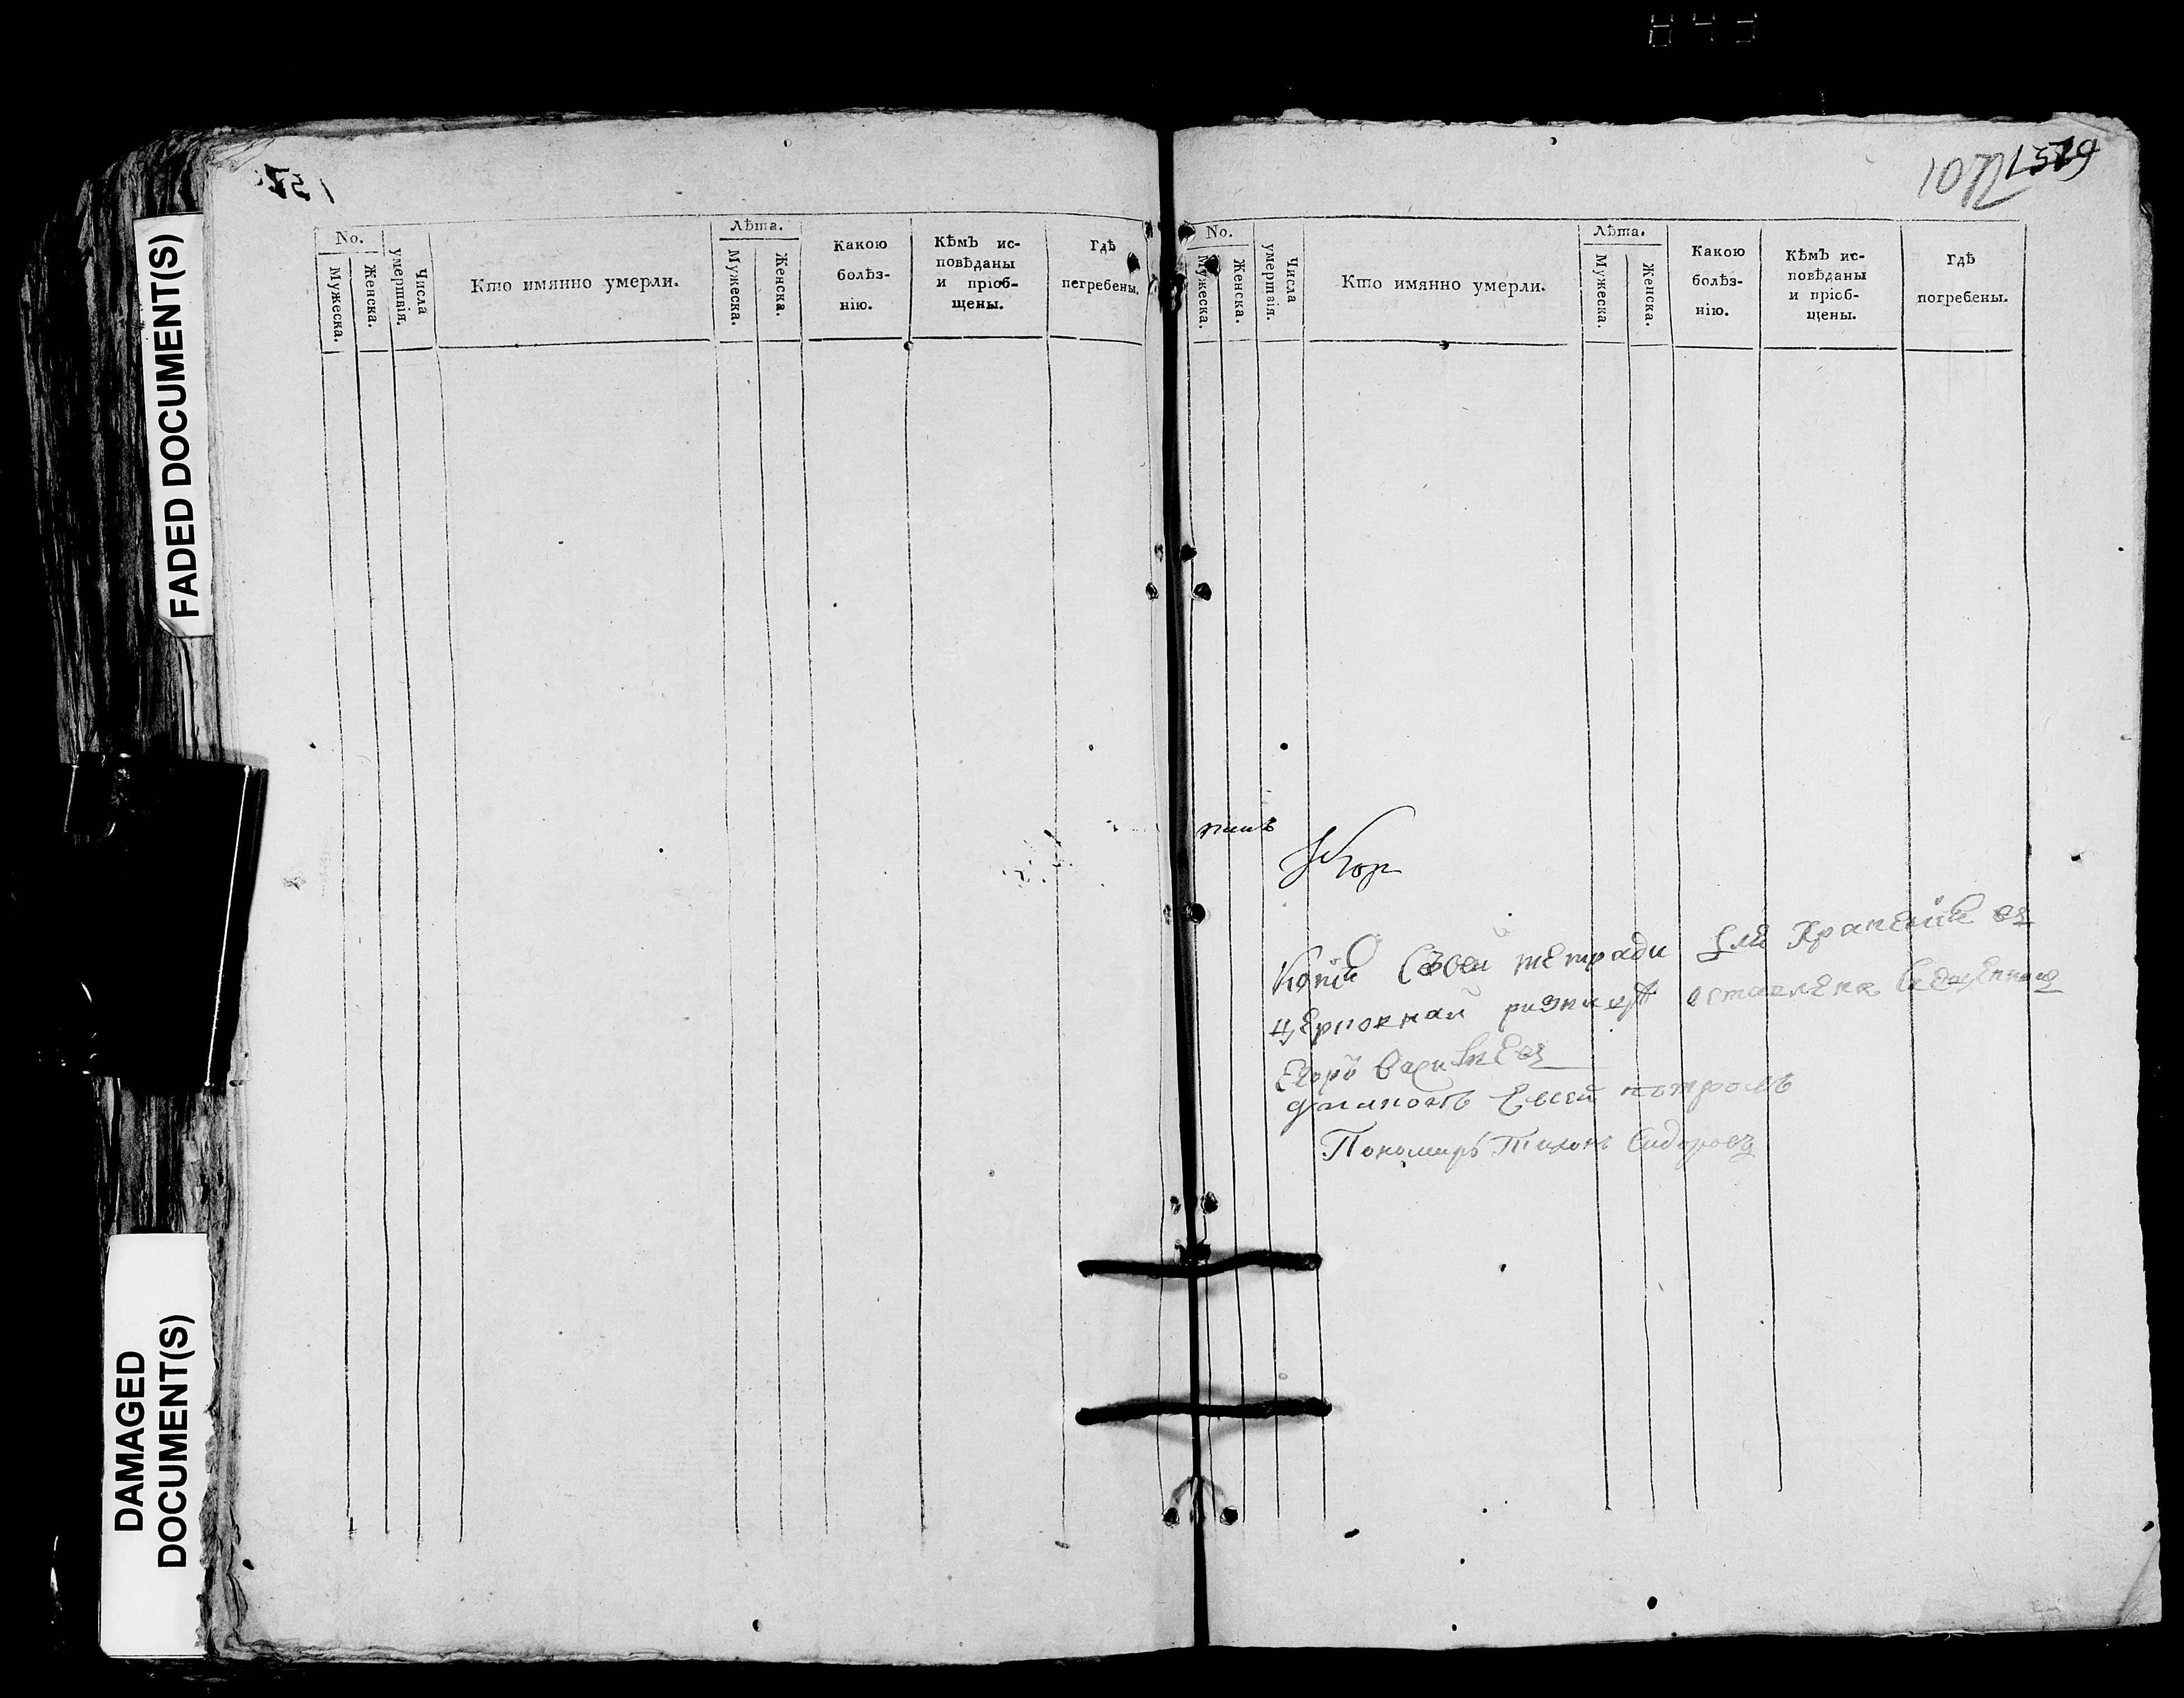 843
FADED DOCUMENT(S)
DAMAGED
DOCUMENT(S)
No.
Мужеска.
Женска.
Числа
умертвія.
Кто имянно умерли.
Лѣта.
Мужеска.
Женска.
Какою
болѣз-
нію.
Кѣмъ ис-
повѣданы
и пріоб-
щены.
гдѣ
погребены.
No.
Мужеска.
Женска.
Числа
умертвія.
Кто имянно умерли.
Лѣта.
Мужеска.
Женска.
Какою
болѣз-
нію.
Кѣмъ ис-
повѣданы
и пріоб-
щены.
гдѣ
погребены.
Копіи Съвеи тетради Для Храненія въ
церковнаи ризницѣ оставлена Священникъ
Егоръ Василъевъ
Дьяконъ Евсей петровъ
Пономарь Тихонъ Сидоровъ